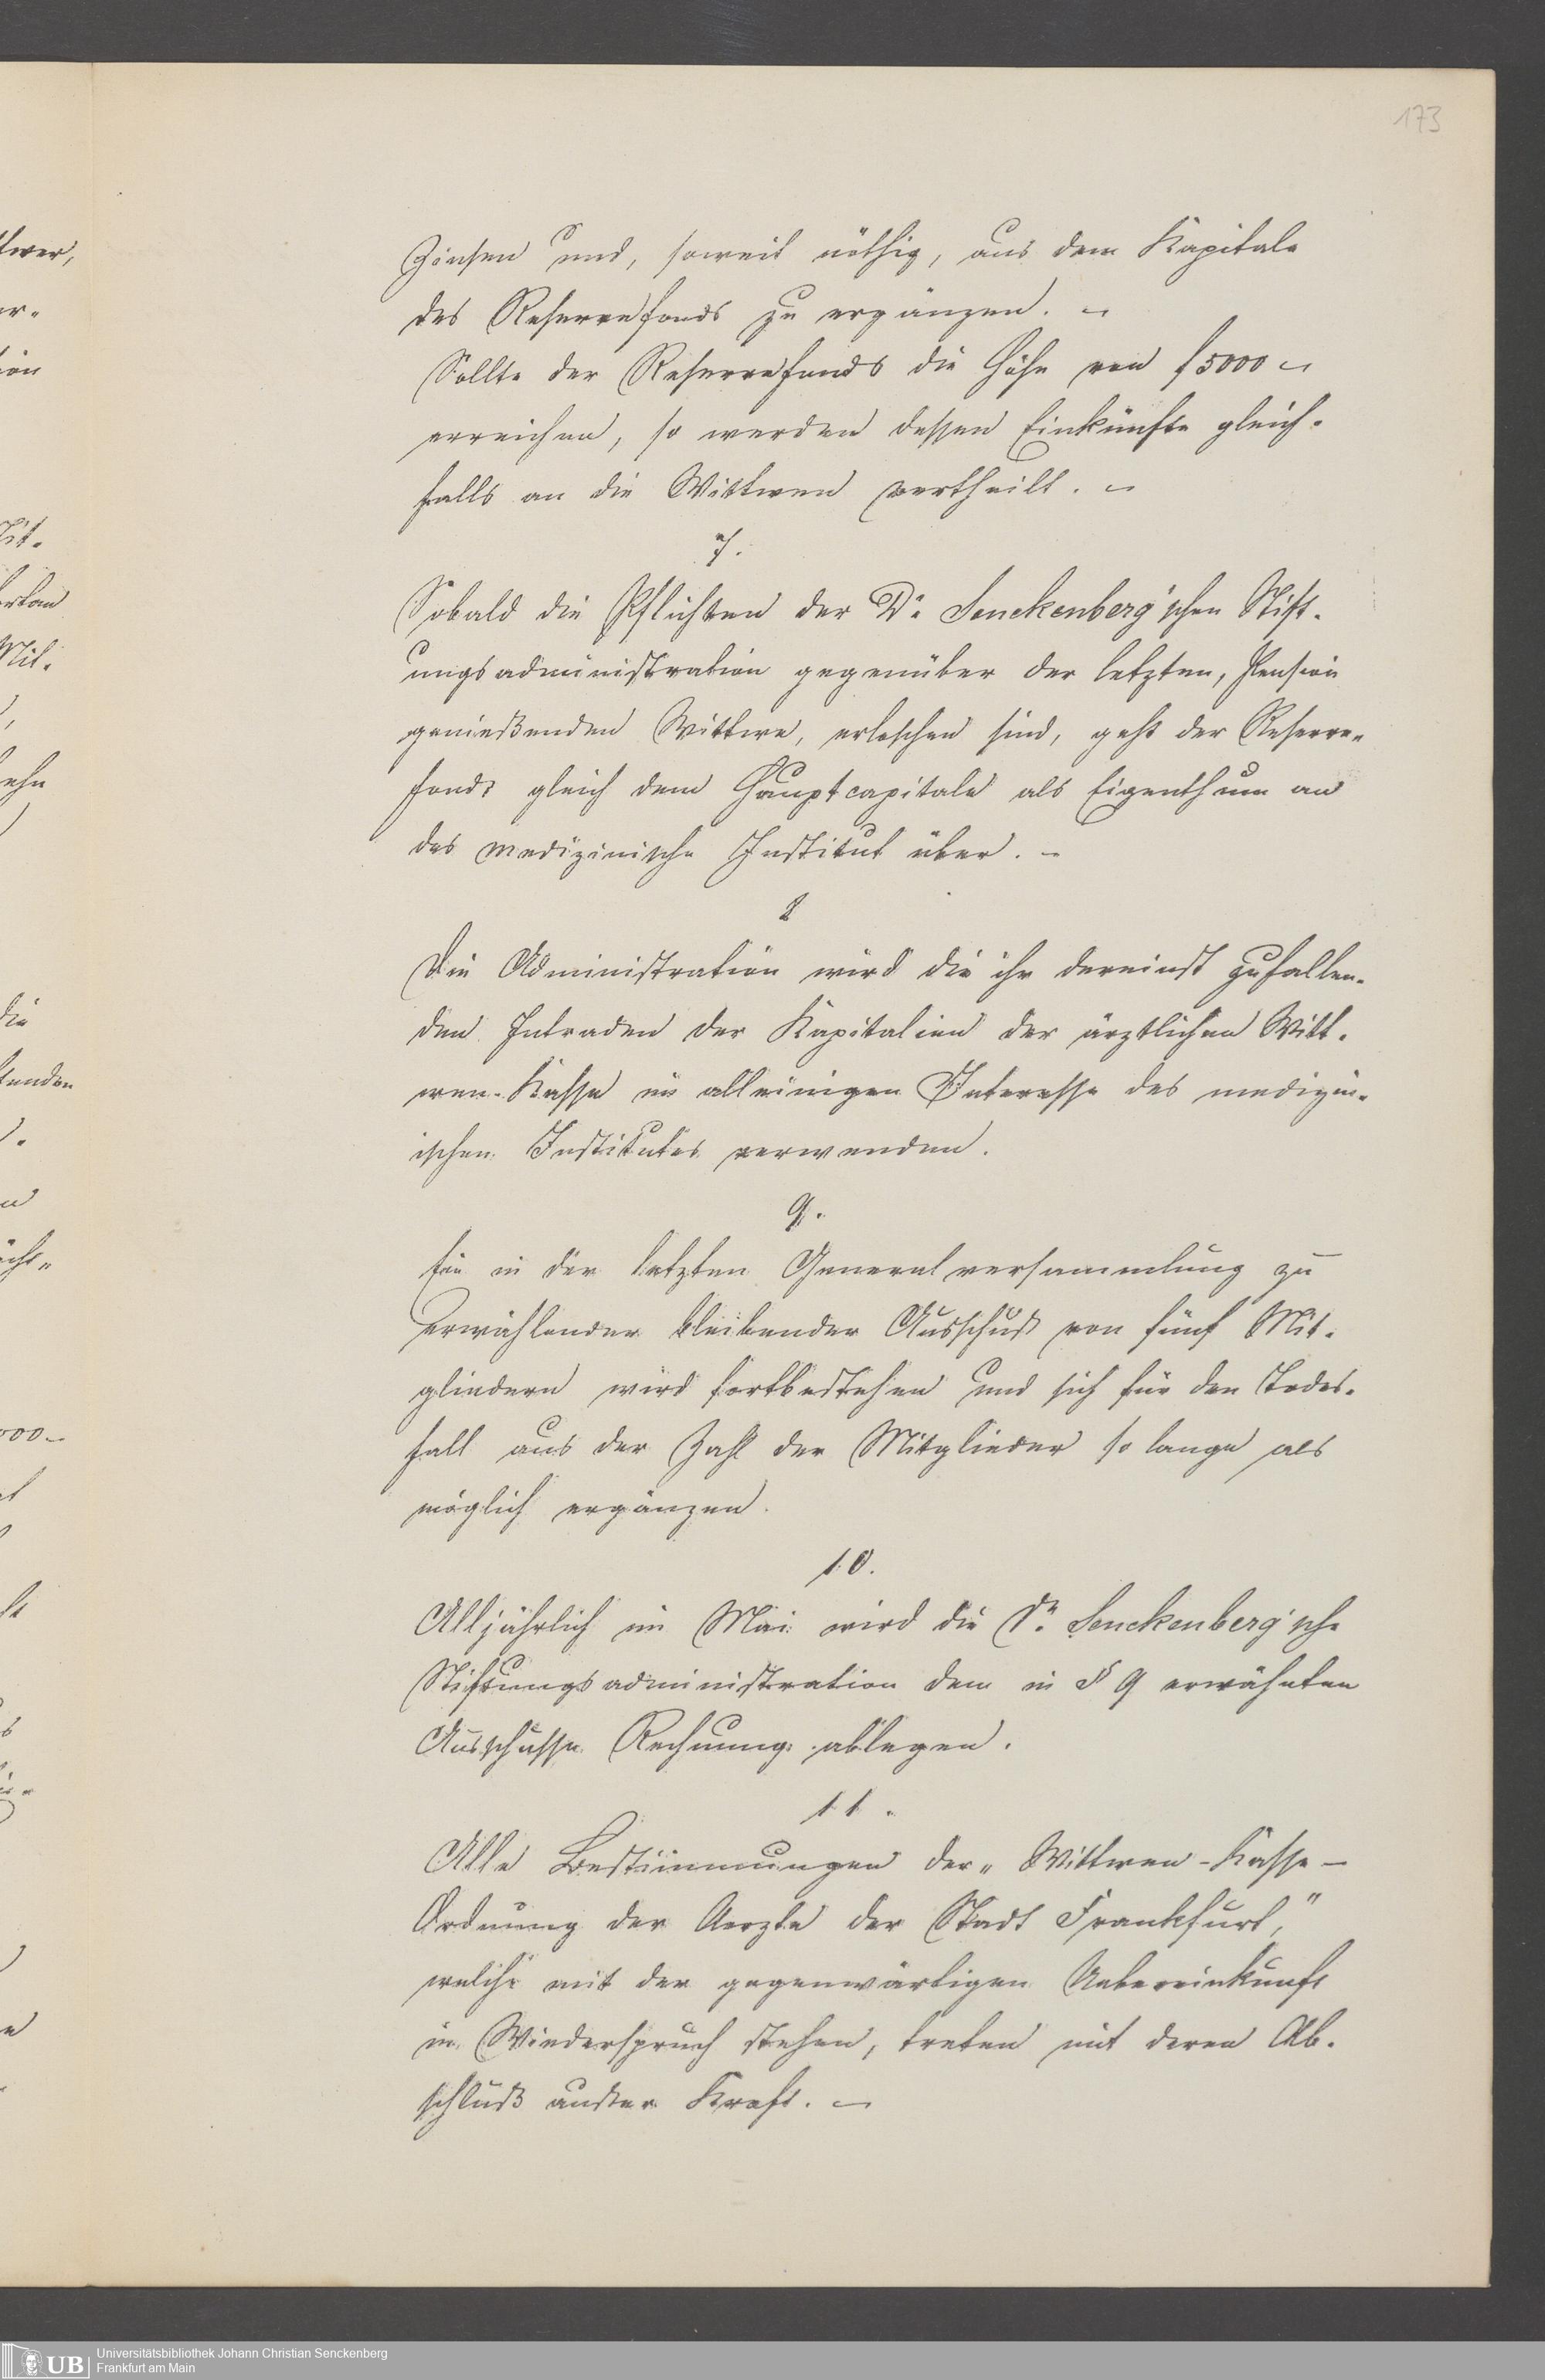 173
Zinsen und, soweit nöthig, aus dem Kapitale
des Reservefonds zu ergänzen. –
Sollte der Reservefonds die Höhe von f 5000 –
erreichen, so werden dessen Einkünfte gleich-
falls an die Wittwen vertheilt. –
7.
Sobald die Pflichten der Dr. Senckenberg'schen Stift-
ungsadministration gegenüber der letzten, Pension
genießenden Wittwe, erloschen sind, geht der Reserve-
fonds gleich dem Hauptcapitale als Eigenthum an
das medizinische Institut über. –
8
Die Administration wird die ihr dereinst zufallen-
den Intraden der Kapitalien der ärztlichen Witt-
wen-Kasse im alleinigen Interesse des medizin-
ischen Institutes verwenden.
9.
Ein in der letzten Generalversammlung zu
erwählender bleibender Ausschuß von fünf Mit-
gliedern wird fortbestehen und sich für den Todes-
fall aus der Zahl der Mitglieder so lange als
möglich ergänzen.
10.
Alljährlich im Mai wird die Dr. Senckenberg'sche
Stiftungsadministration dem in § 9 erwähnten
Ausschusse Rechnung ablegen.
11.
Alle Bestimmungen der „Wittwen-Kasse-
Ordnung der Aerzte der Stadt Frankfurt,"
welche mit der gegenwärtigen Uebereinkunft
in Wiederspruch stehen, treten mit deren Ab-
schluß außer Kraft. –
UB
Universitätsbibliothek Johann Christian Senckenberg
Frankfurt am Main